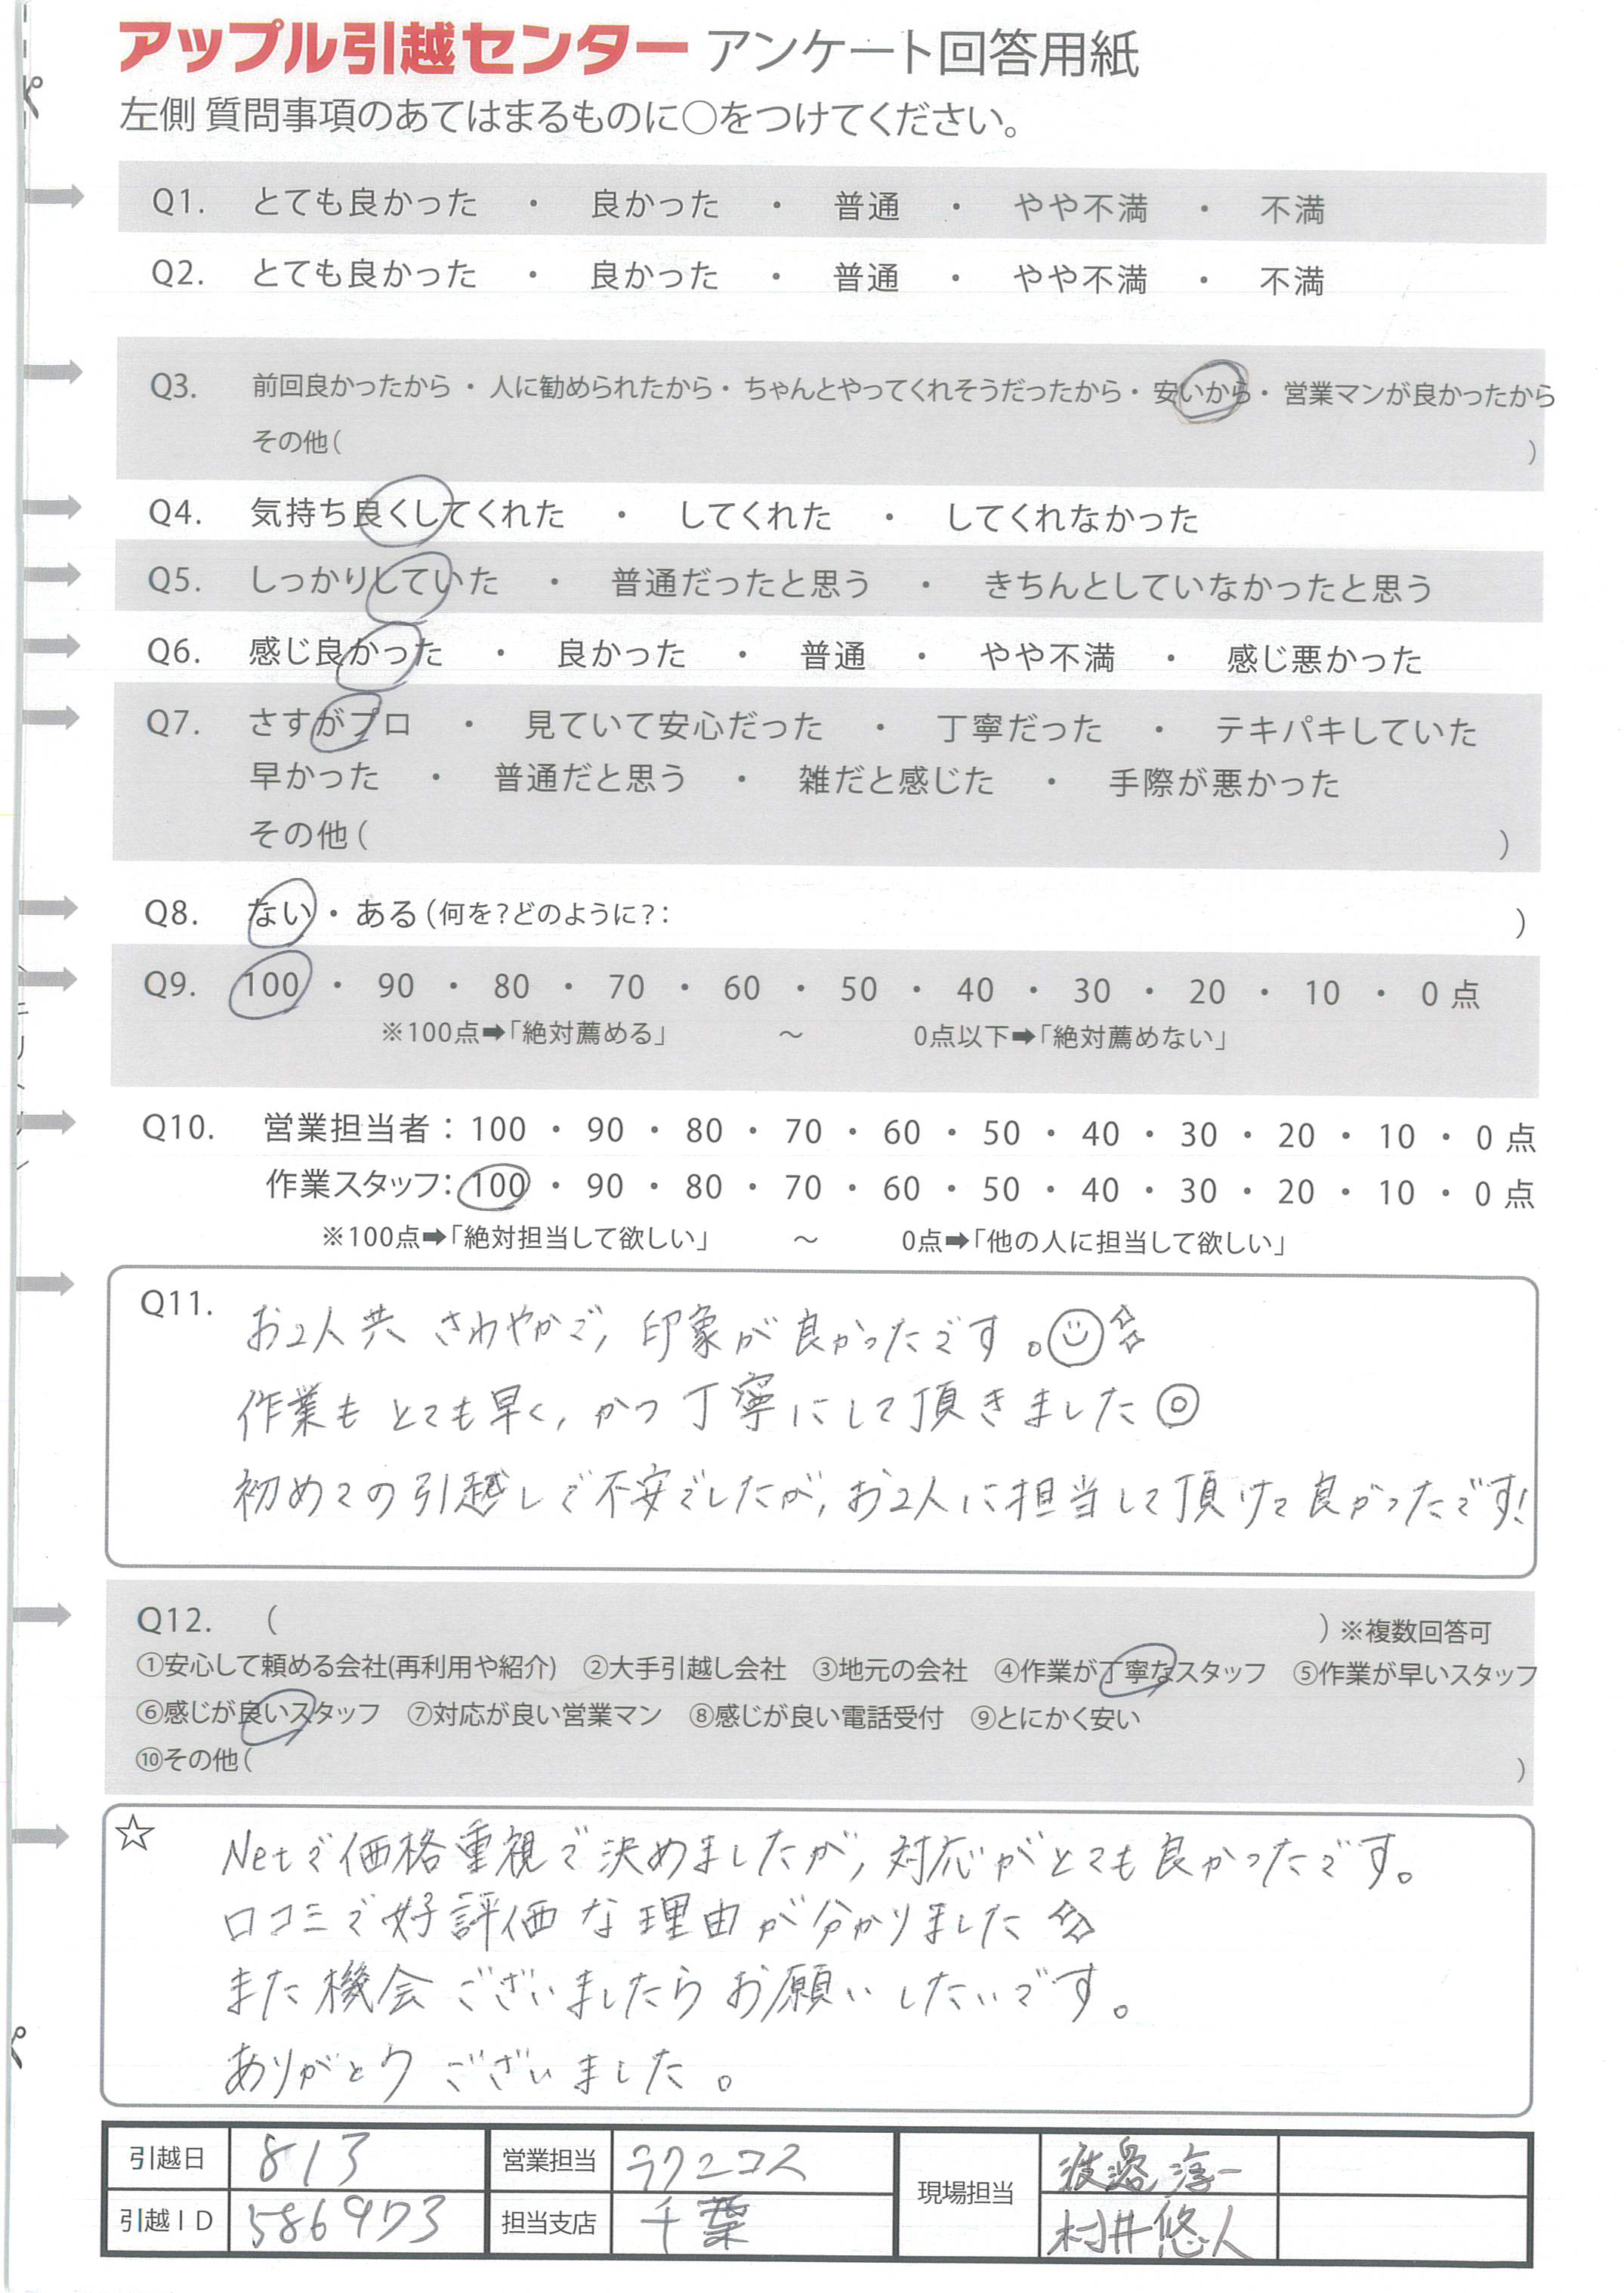 アップル引越センター アンケート回答用紙
左側 質問事項のあてはまるものに○をつけてください。
Q1. とても良かった ・ 良かった ・ 普通 ・ やや不満 ・ 不満
Q2. とても良かった ・ 良かった ・ 普通 ・ やや不満 ・ 不満
Q3. 前回良かったから ・ 人に勧められたから ・ ちゃんとやってくれそうだったから ・ 安いから ・ 営業マンが良かったから
その他( )
Q4. 気持ち良くしてくれた ・ してくれた ・ してくれなかった
Q5. しっかりしていた ・ 普通だったと思う ・ きちんとしていなかったと思う
Q6. 感じ良かった ・ 良かった ・ 普通 ・ やや不満 ・ 感じ悪かった
Q7. さすがプロ ・ 見ていて安心だった ・ 丁寧だった ・ テキパキしていた
早かった ・ 普通だと思う ・ 雑だと感じた ・ 手際が悪かった
その他( )
Q8. ない ・ ある (何を?どのように?: )
Q9. 100 ・ 90 ・ 80 ・ 70 ・ 60 ・ 50 ・ 40 ・ 30 ・ 20 ・ 10 ・ 0 点
※100点➡「絶対薦める」 ～ 0点以下➡「絶対薦めない」
Q10. 営業担当者: 100 ・ 90 ・ 80 ・ 70 ・ 60 ・ 50 ・ 40 ・ 30 ・ 20 ・ 10 ・ 0 点
作業スタッフ: 100 ・ 90 ・ 80 ・ 70 ・ 60 ・ 50 ・ 40 ・ 30 ・ 20 ・ 10 ・ 0 点
※100点➡「絶対担当して欲しい」 ～ 0点➡「他の人に担当して欲しい」
Q11. お2人共 さわやかで, 印象が良かったです。
作業もとても早く, かつ丁寧にして頂きました◎
初めての引越しで不安でしたが, お2人に担当して頂けて良かったです!
Q12. ( ) ※複数回答可
①安心して頼める会社(再利用や紹介) ②大手引越し会社 ③地元の会社 ④作業が丁寧なスタッフ ⑤作業が早いスタッフ
⑥感じが良いスタッフ ⑦対応が良い営業マン ⑧感じが良い電話受付 ⑨とにかく安い
⑩その他( )
☆ Netで価格重視で決めましたが, 対応がとても良かったです。
口コミで好評価な理由が分かりました☆
また機会ございましたらお願いしたいです。
ありがとうございました。
引越日 813 営業担当 ラクニコス 現場担当 渡邉 淳一
引越ID 586973 担当支店 千葉 村井悠人